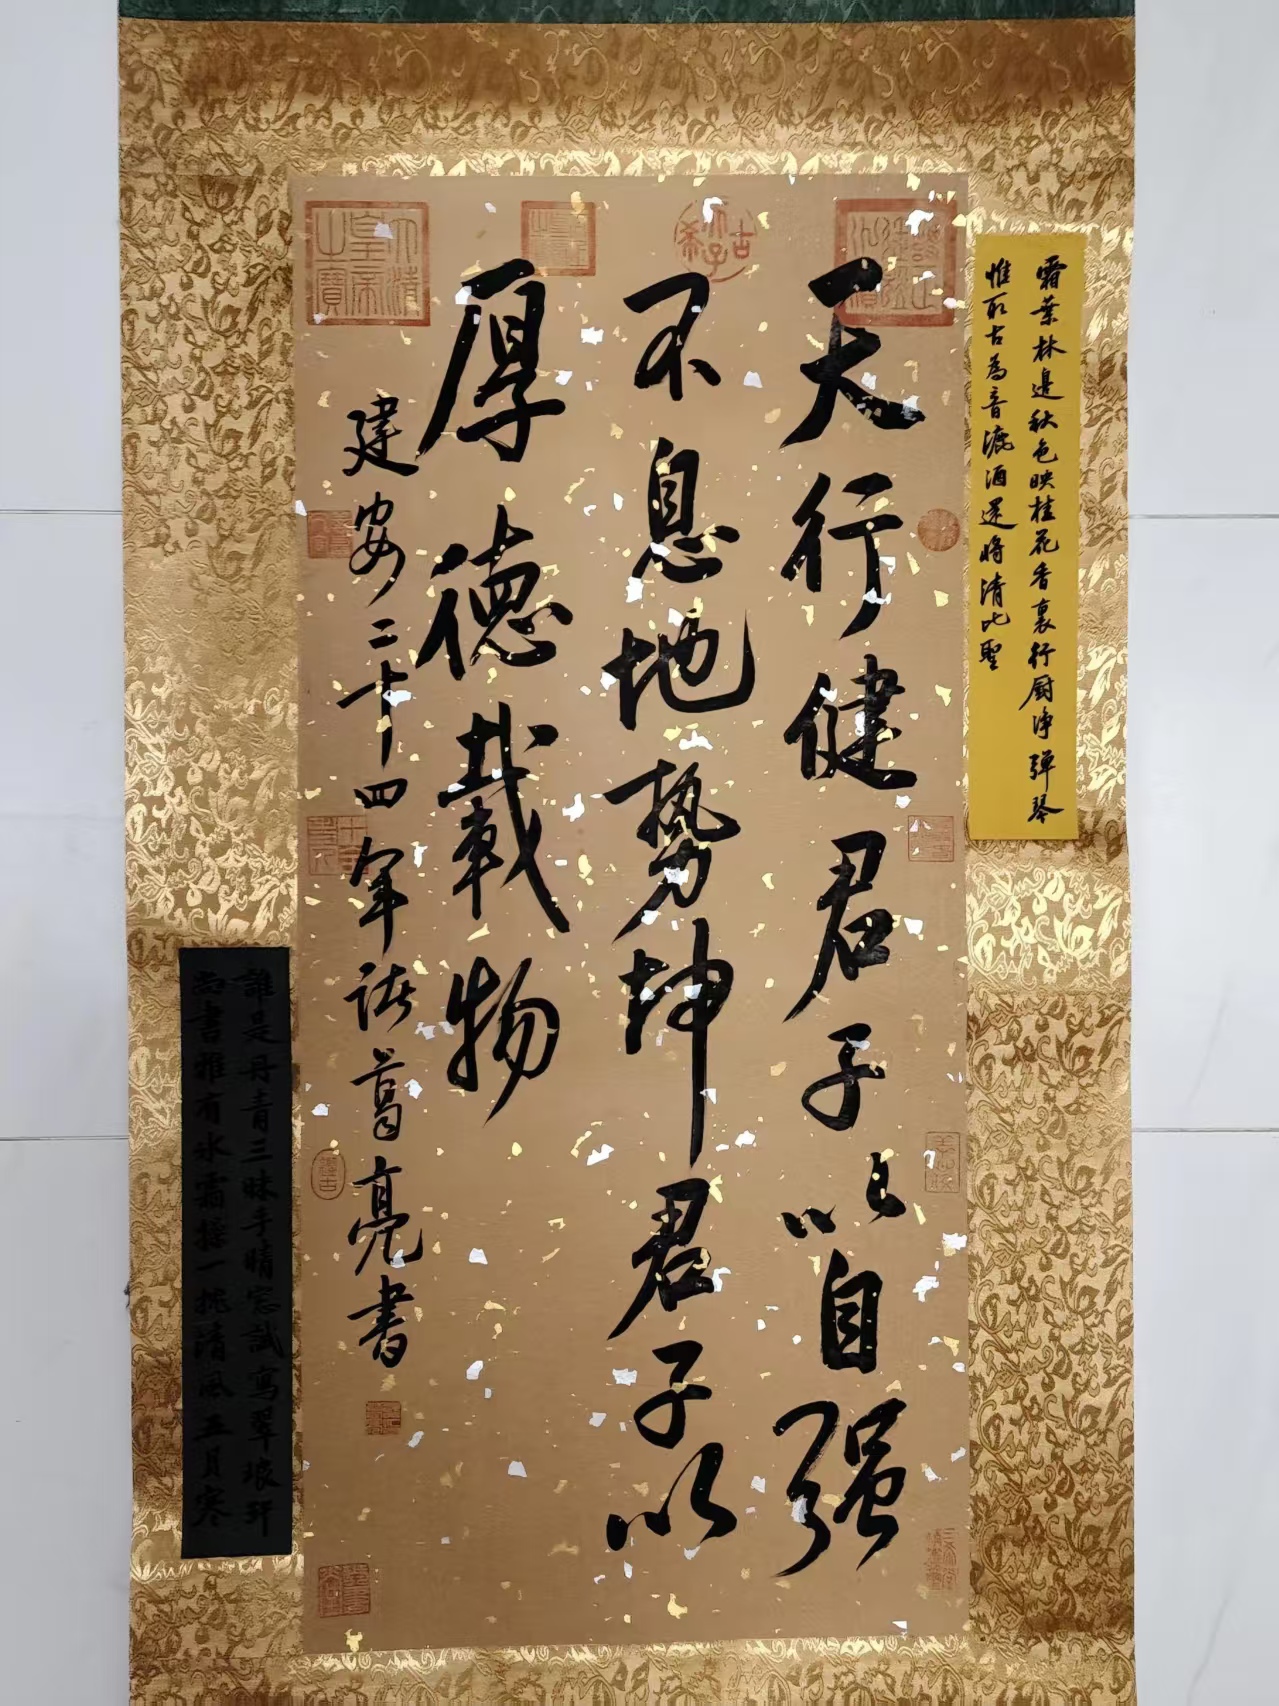 霜葉林邊秋色映桂花香裏行廚净彈琴
惟取古為音漉酒還將清比聖
天行健君子以自强
不息地势坤君子以
厚德載物
建安二十四年諸葛亮書
誰是丹青三昧手晴窓試寫翠琅玕
尚書雅有冰霜操一挹清風五月寒